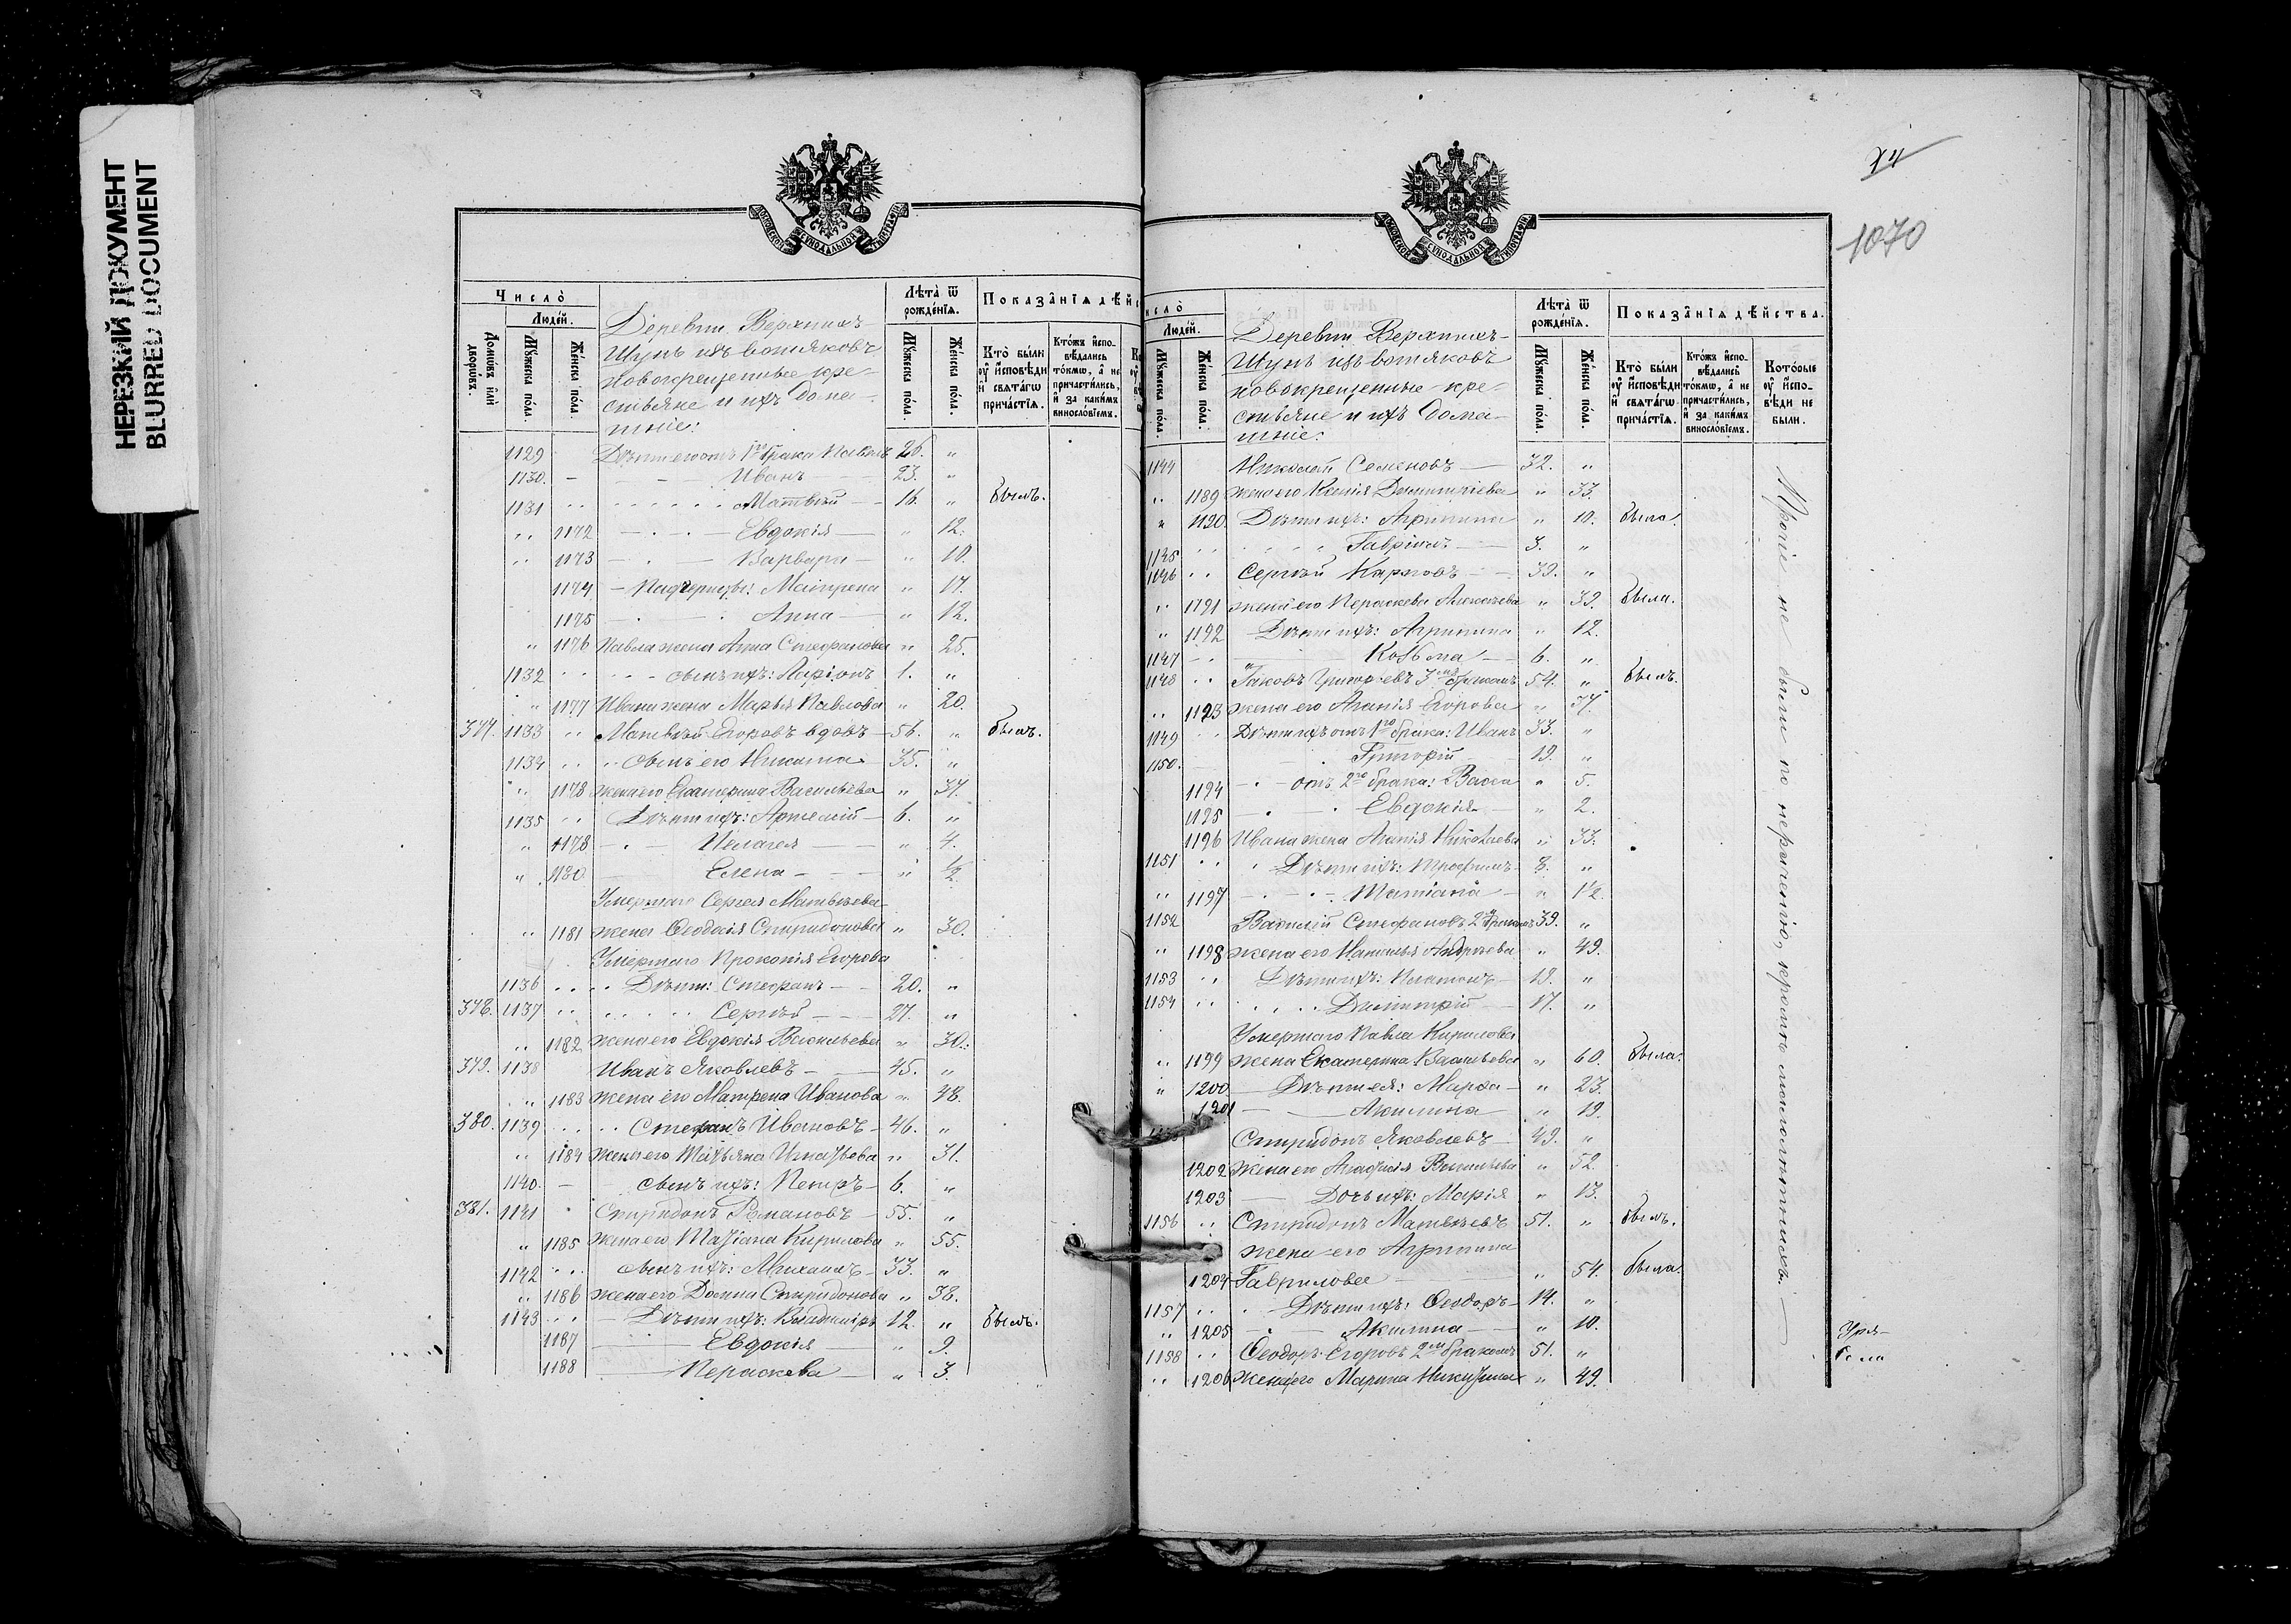 НЕРЕЗКИЙ ДОКУМЕНТ
BLURRED DOCUMENT
МОСКОВСКОЙ СѴНОДАЛЬНОЙ ТИПОГРАФІИ
Число̀
Людей.
Домѡвъ илѝ дворѡвъ.
Мꙋжеска пола.
Женска пола.
Деревни Верхнихъ
Шунъ изъ вотяковъ
новокрещенные кре-
стьяне и ихъ дома-
шніе:
Лѣта̀ ѿ рожденїѧ.
Мꙋжеска пола.
Женска пола.
Показа̂нїѧ дѣйс
Кто̀ были ᲂу̓ исповѣди и свѧтагѡ причастїѧ.
Кто́жъ исповѣдались то́кмѡ, а не причастились, и за какимъ винословїемъ.
1129 Дѣти его отъ 1го брака Павелъ 26. „
1130. – – – Иванъ 23. „
1131 Матвѣй – 16. „ былъ.
„ 1172 – Евдокія – „ 12.
„ 1173 – Варвара – „ 10.
1174 – Падчерицы: Матрена „ 17.
1175 – Анна – „ 12.
„ 1176 Павла жена Анна Стефанова „ 25.
1132 – сынъ ихъ: Ларіонъ 1. „
„ 1177 Ивана жена Марья Павлова „ 20.
377. 1133 „ Матвѣй Егоровъ вдовъ – 56. „ былъ.
1134 „ сынъ его Никита 35. „
„ 1178 жена его Екатерина Васильева „ 37.
1135 „ Дѣти ихъ: Артемій – 6. „
„ 1178 – Пелагея – „ 4.
„ 1180 Елена – „ ½
Умершаго Сергея Матвѣева
„ 1181 жена Ѳеодосія Спиридонова „ 30.
Умершаго Прокопія Егорова
1136 Дѣти: Стефанъ – 20. „
378. 1137 Сергѣй – 27. „
„ 1182 жена его Евдокія Васильева „ 30.
379. 1138 Иванъ Яковлевъ – 45. „
„ 1183 жена его Матрена Иванова „ 48.
380. 1139 Стефанъ Ивановъ – 46. „
„ 1184 жена его Татьяна Игнатьева „ 31.
1140. – сынъ ихъ: Петръ – 6. „
381. 1141 Спиридонъ Романовъ – 55. „
„ 1185 жена его Татіана Кирилова „ 55.
1142 сынъ ихъ: Михаилъ – 33. „
„ 1186 жена его Домна Спиридонова „ 38.
1143 – Дѣти ихъ: Владиміръ 12. „ былъ.
1187 – Евдокія – „ 9.
1188 – Параскева – „ 3.
74
1070
МОСКОВСКОЙ СѴНОДАЛЬНОЙ ТИПОГРАФІИ
исло̀
Людей.
Мꙋжеска пола.
Женска пола.
Деревни Верхнихъ
Шунъ изъ вотяковъ
новокрещенные кре-
стьяне и ихъ дома-
шніе:
Лѣта̀ ѿ рожденїѧ.
Мꙋжеска пола.
Женска пола.
Показа̂нїѧ дѣйства.
Кто̀ были ᲂу̓ исповѣди и свѧтагѡ причастїѧ.
Кто́жъ исповѣдались то́кмѡ, а не причастились, и за какимъ винословїемъ.
Кото́рые ᲂу̓ исповѣди не были.
1144 Николай Семеновъ – 32. „
„ 1189 жена его Ксенія Димитріева „ 33.
„ 1190. Дѣти ихъ: Агрипина „ 10. была.
1145 Гавріилъ – 3. „
1146 Сергѣй Карповъ – 39. „
„ 1191 жена его Параскева Алексѣева „ 39. была.
„ 1192 – Дѣти ихъ: Агрипина „ 12.
1147 – Козьма – 6. „
1148 Іаковъ Григорьевъ 3мъ бракомъ 54. „ былъ.
„ 1193 жена его Агапія Егорова „ 37.
1149 Дѣти ихъ отъ 1го брака: Иванъ 33. „
1150. Григорій 19. „
1194 – отъ 2го брака: Васса „ 5.
1195 – Евдокія – „ 2.
1196 Ивана жена Агапія Николаева „ 33.
1151 Дѣти ихъ: Трофимъ 8. „
„ 1197 – Татіана – „ 1½.
1152 Василій Стефановъ 2мъ бракомъ 39. „
„ 1198 жена его Наталья Андреева „ 49.
1153 Дѣти ихъ: Платонъ – 19. „
1154 Димитрій – 17. „
Умершаго Павла Кирилова
„ 1199 жена Екатерина Васильева „ 60. была.
„ 1200. – Дѣти ея: Марѳа – „ 23.
1201 – Акилина „ 19.
Спиридонъ Яковлевъ 49. „
1202 жена его Агафія Васильева „ 52.
1203 – Дочь ихъ: Марія „ 13.
1156 Спиридонъ Матвѣевъ 51. „ былъ.
жена его Агрипина
1204 Гаврилова – „ 54. была.
1157 – Дѣти ихъ: Ѳеодоръ – 14. „
„ 1205 – Акилина – „ 10.
1158 Ѳеодоръ Егоровъ 2мъ бракомъ 51. „
„ 1206 жена его Марина Никитина „ 49.
Прочіе не были по нераченію, кромѣ малолѣтнихъ.